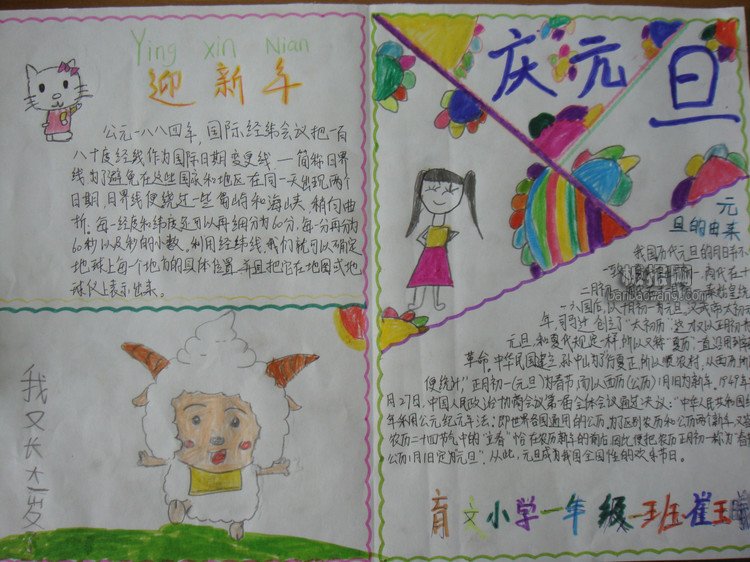 Ying xin Nian
迎新年
公元一八八四年,国际经纬会议把一百
八十度经线作为国际日期变更线——简称日界
线为了避免在这些国家和地区在同一天出现两个
日期,日界线便绕过一些岛屿和海峡,稍向曲
折。每一经度和纬度还可以再细分为60分,每一分再分为
60秒以及秒的小数。利用经纬线,我们就可以确定
地球上每个地方的具体位置,并且把它在地图或地
球仪上表示出来。
我又长大一岁了
庆元旦
元
旦的由来
我国历代元旦的月日并不
二月初一
年,司马迁创立了"太初历",这才又以正月初一
元旦,和夏代规定一样,所以又称"夏历",一直沿用到
革命。中华民国建立,孙中山为了行夏正,所以顺农村,从西历,所
便统计",正月初一(元旦)为春节,而以西历(公历)1月1日为新年,1949年
月27日,中国人民政治协商会议第一届全体会议通过决议:"中华人民共和国纪
年采用公元纪元年法",即世界各国通用的公历,为了区别农历和公历两个新年,又
农历二十四节气中的"立春"恰在农历新年的前后,因此便把农历正月初一称为"春
公历1月1日定为元旦"。从此,元旦成为我国全国性的欢乐节日。
育文小学一年级一班崔玉